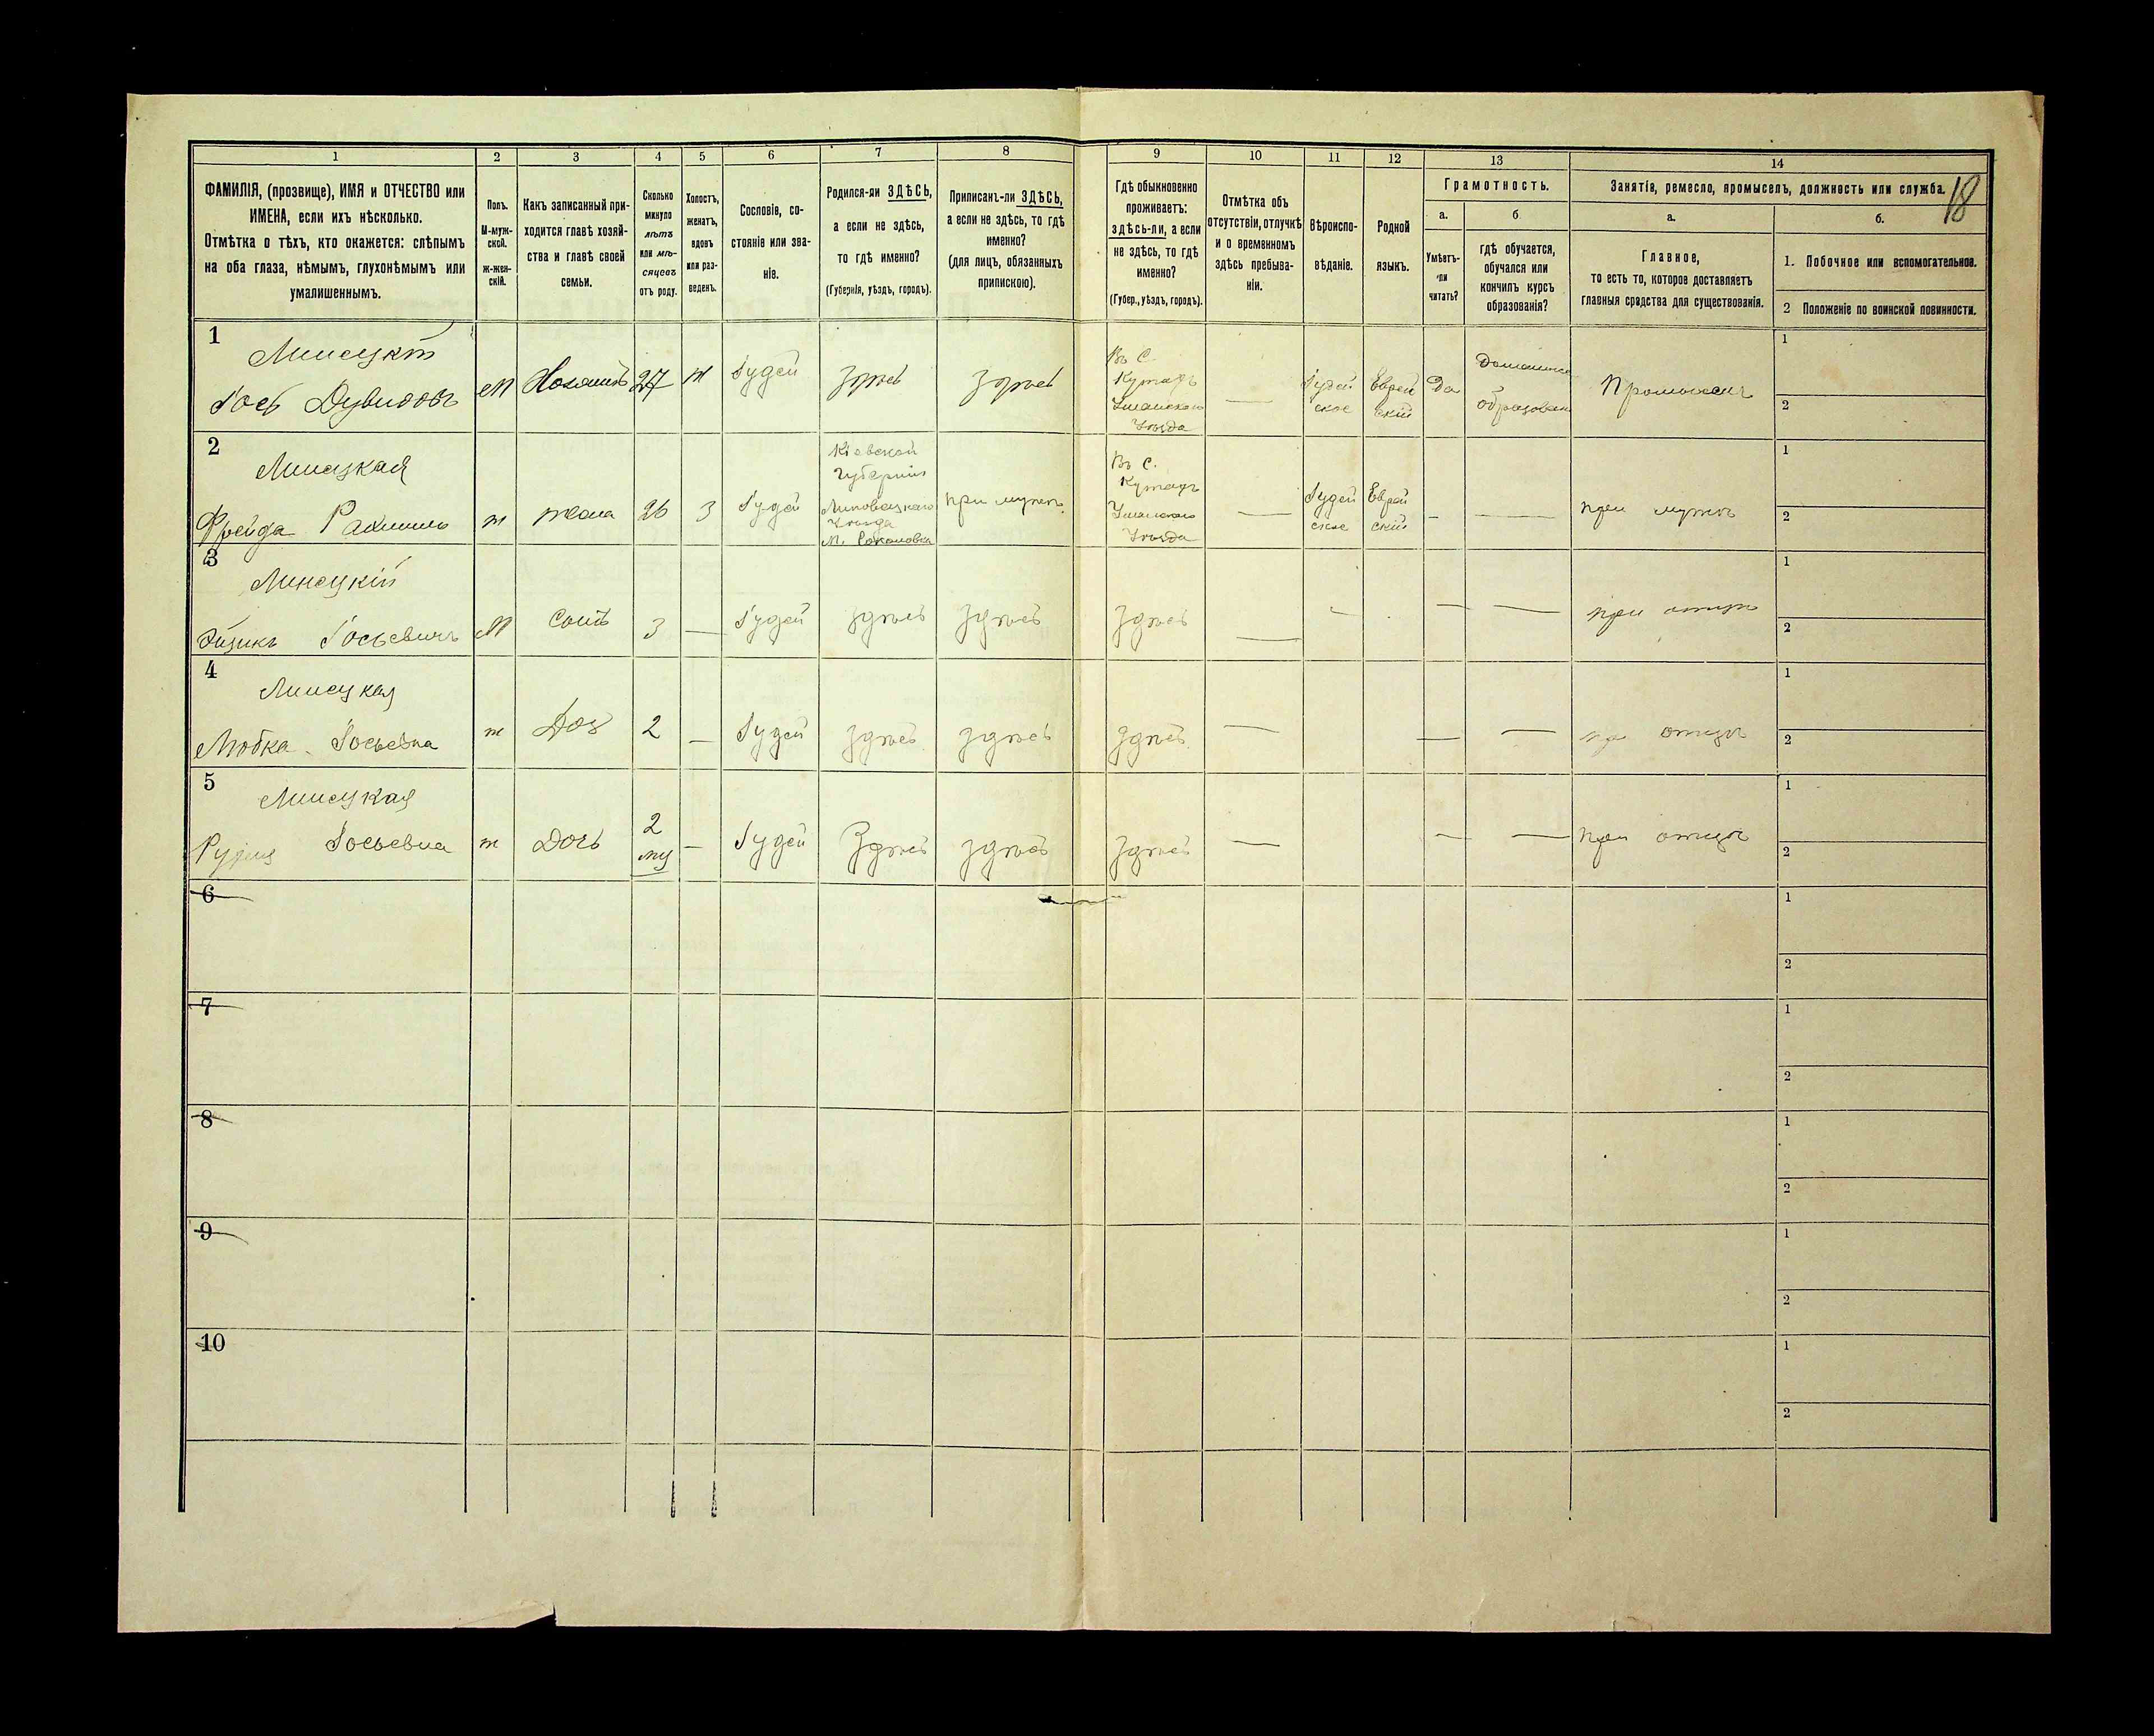 1 2 3 4 5 6 7 8 9 10 11 12 13 14
18
ФАМИЛІЯ, (прозвище), ИМЯ и ОТЧЕСТВО или
ИМЕНА, если ихъ нѣсколько.
Отмѣтка о тѣхъ, кто окажется: слѣпымъ
на оба глаза, нѣмымъ, глухонѣмымъ или
умалишеннымъ.
Полъ.
М-муж-
ской.
ж-жен-
скій.
Какъ записанный при-
ходится главѣ хозяй-
ства и главѣ своей
семьи.
Сколько
минуло
лѣтъ
или мѣ-
сяцевъ
отъ роду.
Холостъ,
женатъ,
вдовъ
или раз-
веденъ.
Сословіе, со-
стояніе или зва-
ніе.
Родился-ли ЗДѢСЬ,
а если не здѣсь,
то гдѣ именно?
(Губернія, уѣздъ, городъ).
Приписанъ-ли ЗДѢСЬ,
а если не здѣсь, то гдѣ
именно?
(для лицъ, обязанныхъ
припискою).
Гдѣ обыкновенно
проживаетъ:
здѣсь-ли, а если
не здѣсь, то гдѣ
именно?
(Губер., уѣздъ, городъ).
Отмѣтка объ
отсутствіи, отлучкѣ
и о временномъ
здѣсь пребыва-
ніи.
Вѣроиспо-
вѣданіе.
Родной
языкъ.
Грамотность.
а.
Умѣетъ-
ли
читать?
б
гдѣ обучается,
обучался или
кончилъ курсъ
образованія?
Занятія, ремесло, промыселъ, должность или служба.
а.
Главное,
то есть то, которое доставляетъ
главныя средства для существованія.
б.
1. Побочное или вспомогательное.
2 Положеніе по воинской повинности.
1
Іось
М
27
ж
Іудей
здѣсь
здѣсь
Въ С.
Уманскаго
Уѣзда
Іудей
ское
Еврей
скій
Да
Домашнее
1
2
2
Линецкая
Фрейда
ж
жена
26
З
Іудей
Кіевской
Губерніи
Липовецкаго
Уѣзда
М. Соколовка
при мужѣ
Въ С.
Уманскаго
Уѣзда
Іудей
ское
Еврей
скій
—
—
при мужѣ
1
2
3
Линецкій
Іосьевичъ
М
Сынъ
3
—
Іудей
здѣсь
здѣсь
здѣсь
—
—
—
—
при отцѣ
1
2
4
Линецкая
Любка Іосьевна
ж
2
—
Іудей
здѣсь
здѣсь
здѣсь
—
—
—
при отцѣ
1
2
5
Линецкая
Іосьевна
ж
Дочь
2
мц
—
Іудей
Здѣсь
здѣсь
здѣсь
—
—
—
при отцѣ
1
2
6
1
2
7
1
2
8
1
2
9
1
2
10
1
2